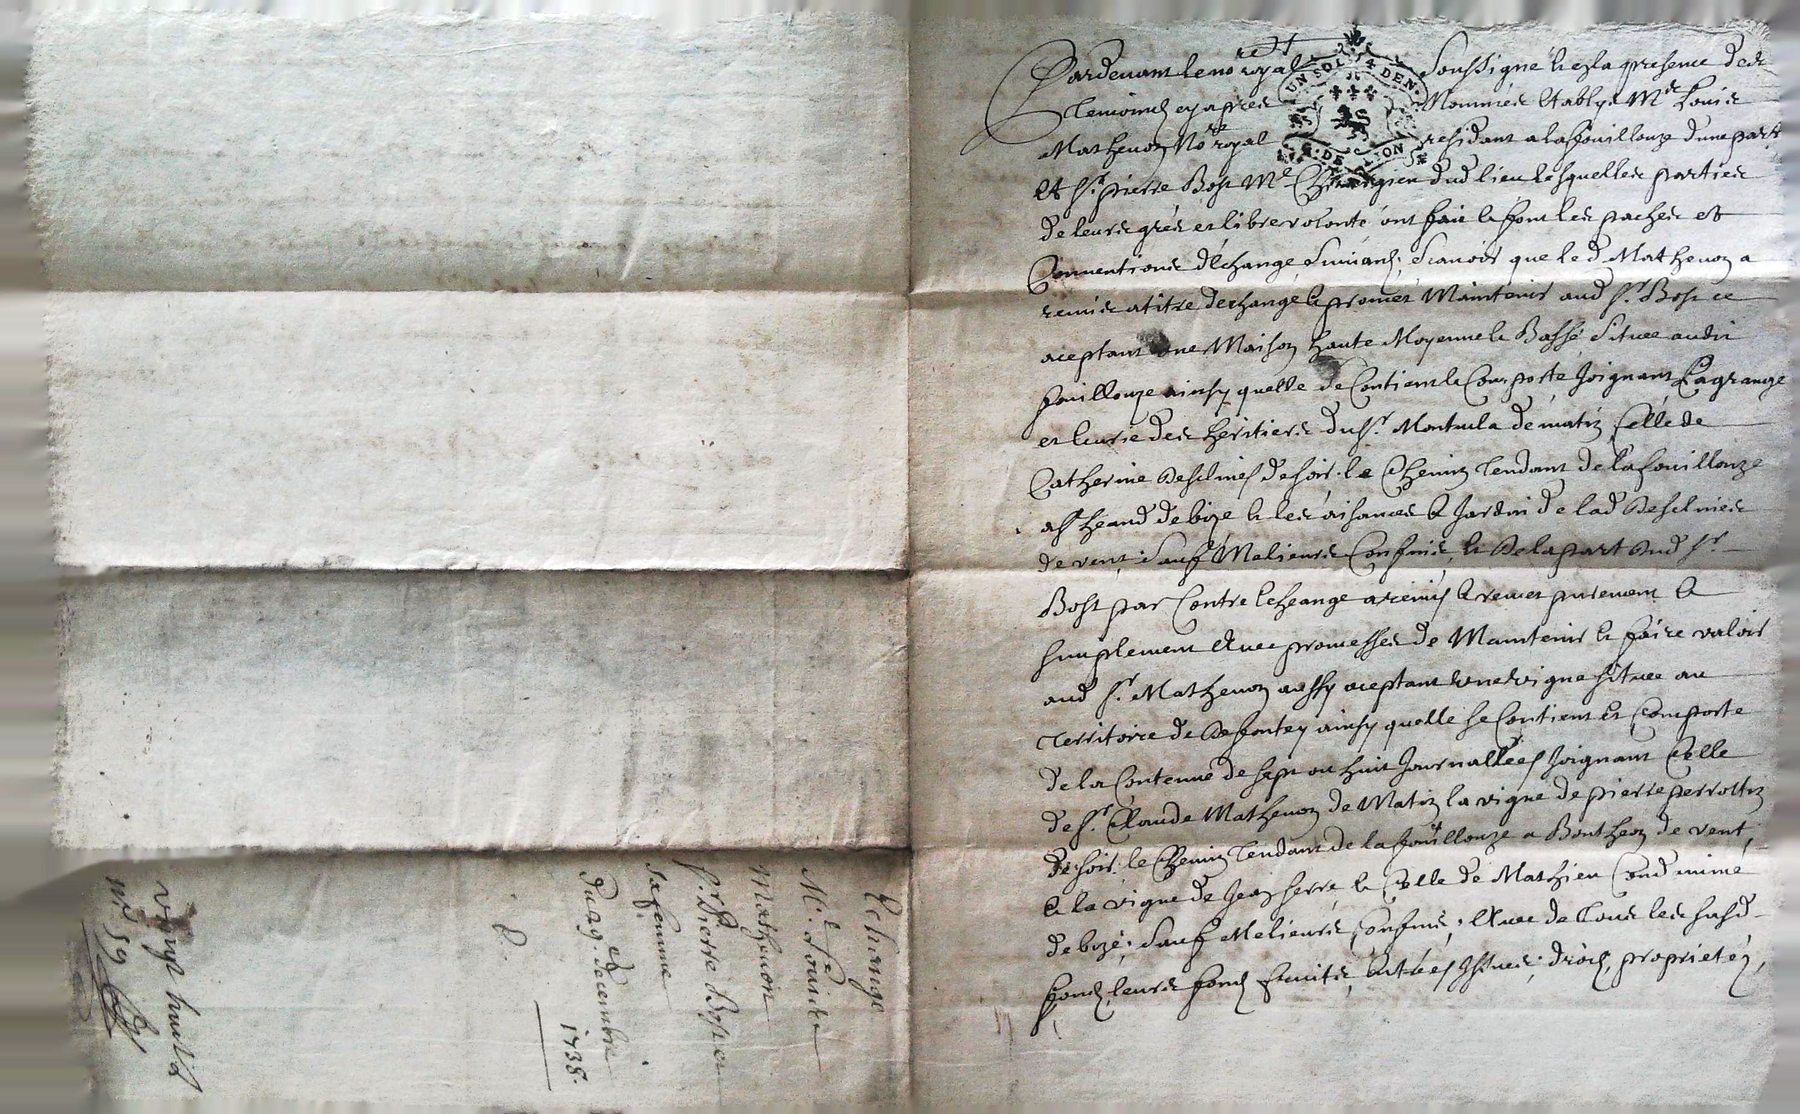 Pardevant le no.re royal Soussigné et en la presence des
temoins cy apres Nommés Etablys M.e Louis
Mathevon No.re royal residant a lafouillouze d'une part
et s.r pierre Bost M.e Chirurgien dud lieu lesquelles parties
de leurs grés et libre volonté ont fait et font les paches et
Conventions d'Echange Suivants, Scavoir que led Mathevon a
remis a titre dechange et promet Maintenir aud s.r Bost ce
aceptant une Maison haute Moyenne et Basse Située audit
fouillouze ainsy quelle se Contient et Comporte Joignant La grange
et Ecurie des heritiers du s.r de matin Celle de
Catherine de soir le Chemin tendant de lafouillouze
a de bize et les aisances et Jardin de lad
de vent, Sauf Melieurs Confins, et De la part Dud s.r
Bost par Contre Echeange a remis et remet purement et
simplement Avec promesses de Maintenir et faire valoir
aud s.r Mathevon aussy aceptant une vigne située au
territoire de ainsy quelle se Contient et Comporte
de la Contenue de sept ou huit Journallées Joignant Celle
de s.r Claude Mathevon de Matin la vigne de pierre perrottin
de soir, le Chemin tendant de la fouillouze a Bontheon de vent,
et la vigne de Jean serre et Celle de Mathieu
de bize, Sauf Melieurs Confins, Avec de tous les susd
fonds leurs fonds fruits, entrées Issues, droits, proprietés,
Echange
M.e Louis
Mathevon
s.r Pierre Bost et
sa femme
Du 29.e decembre
1738.
vingt huit